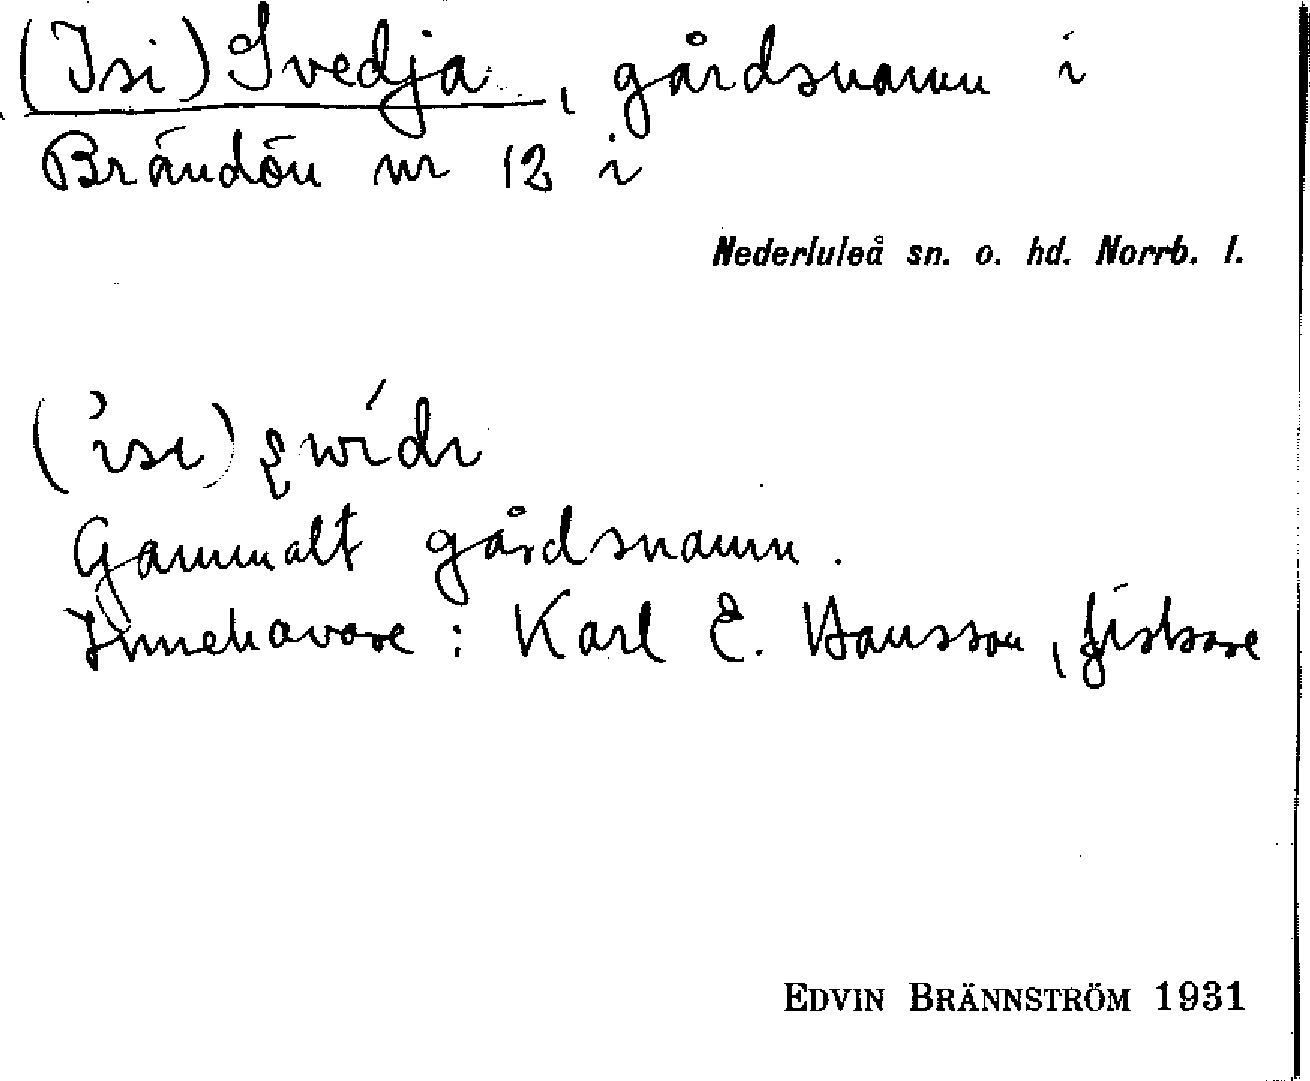 (Isi) Svedja, gårdsnamn i
Brändön nr 12 i
Nederluleå sn. o. hd. Norrb. l.
Gammalt gårdsnamn.
Innehavare: Karl E. Hansson, fiskare
EDVIN BRÄNNSTRÖM 1931